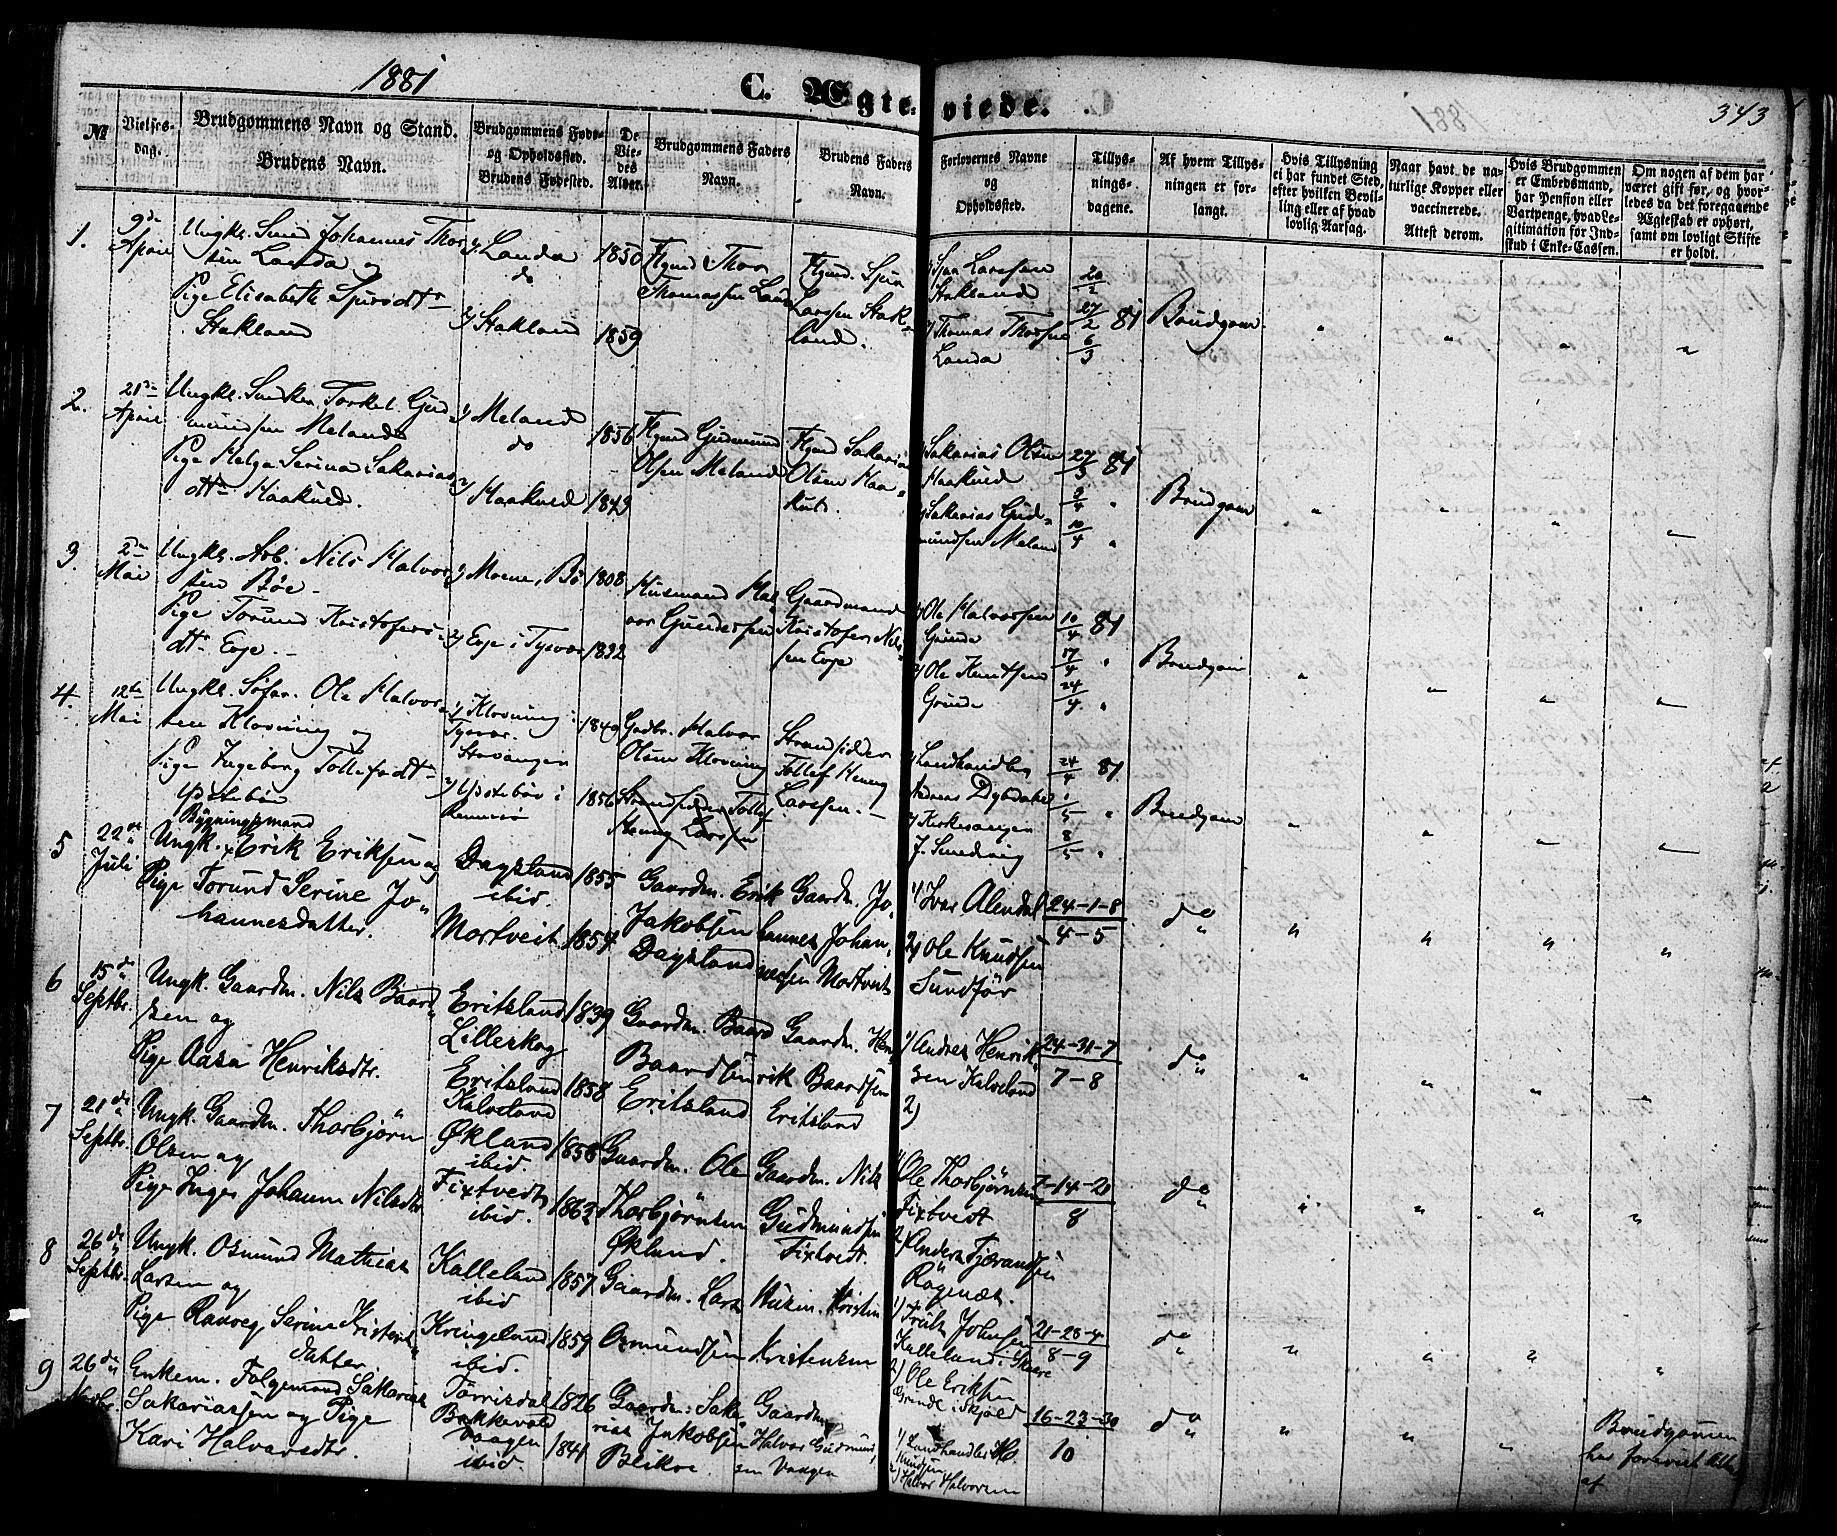 1881
C. Ægteviede.
343
№
Vielsesdag.
Brudgommens Navn og Stand.
Brudens Navn.
Brudgommens Føde-
og Opholdssted.
Brudens Fødested.
De
Viedes
Alder.
Brudgommens Faders
Navn.
Brudens Faders
Navn.
Forlovernes Navne
og
Opholdssted.
Tillysningsdagene.
Af hvem Tillysningen er forlangt.
Hvis Tillysning
ei har fundet Sted,
efter hvilken Bevilling eller af hvad
lovlig Aarsag.
Naar havt de naturlige Kopper eller
vaccinerede.
Attest derom.
Hvis Brudgommen
er Embedsmand,
har Pension eller
Vartpenge, hvad Legitimation for Indskud i Enke-Cassen.
Om nogen af dem har
været gift før, og hvorledes da det foregaaende
Ægteskab er ophørt,
samt om lovligt Skifte
er holdt.
1. 9de April
Ungkl. Smed Johannes Thorsen Landa og
Pige Elisabeth Sjursdtr Stakland
1) Landa do
2) Stakland
1850
1859
Flgmd Thor Thomassen Landa
Flgmd. Sjur Larssen Stakland.
1) Sjur Larssen Stakland
2) Thomas Thorsen Landa
20/2 27/2 81 6/3
Brudgom
2. 21de April
Ungkl. Torkel Gudmundsen Meland
Pige Helga Serina Sakariasdtr Haakved.
1) Meland do
2) Haakved
1856
1849
Flgmd Gudmund Olsen Meland
Flgmd Sakarias Olsen Haakved.
1) Sakarias Olsen Haakved
2) Sakarias Gudmundsen Meland
27/3 81 3/4 10/4
Brudgom
3. 2den Mai
Ungkl. Arb. Nils Halvorsen Bøe
Pige Torund Kristofersdtr Evje
1) Moene, Bø
2) Evje i Tysvær
1808
1832
Husmand Halvor Gundersen
Gaardmand Kristofer Nilssen Evje
1) Ole Halvorssen Grinde
2) Ole Knutsen Grinde
10/4 81 17/4 24/4
Brudgom
4. 12te Mai
Ungkl. Søfar. Ole Halvorsen Klovning og
Pige Ingeborg Tollefsdtr Ydstebøe
1) Klovning i Tysvær. Stavanger
2) Ydstebøe i Rennesø
1849
1856
Gadbr. Halvor Olsen Klovning
Strandsidder Tollef Henny Larssen
Strandsidder Tollef Henny Larssen
1) Landhandler Andreas Dybdahl
2) Kirkesanger J. Smedvig
24/4 81 1/5 8/5
Brudgom
5 22de Juli
Bygningsmand
Ungk. Erik Eriksen og
Pige Torund Serine Johannesdatter.
Dagsland ibid.
Mortveit
1855
1854
Gaardm. Erik Jakobsen Dagsland
Gaardm. Johannes Johannessen Mortveit
1) Ivar Alendal
2) Ole Knudsen Sundför
24-1-8
4-5
do
6 15de Septbr.
Ungk. Gaardm. Nils Baardsen og
Pige Aasa Henriksdtr.
Eritsland
Lilleskog
Eritsland
Kalveland
1839
1858
Gaardm. Baard Baardsen Eritsland
Gaardm. Henrik Baardsen Eritsland
1) Andres Henriksen Kalveland
2)
24-31-7
7-8
do
7 21de Septbr.
Ungk. Gaardm. Thorbjörn Olsen og
Pige Inger Johanne Nilsdtr
Økland ibid.
Fixtvedt ibid.
1858
1863
Gaardm. Ole Thorbjörnsen Økland.
Gaardm. Nils Gudmundsen Fixtvedt.
1) Ole Thorbjörnsen Fixtvedt
2) Anders Tjerandsen Ragenæs.
7-14-21
8
do
8 26de Septbr.
Ungk. Osmund Mathias Larsen og
Pige Ranveg Serine Kristensdatter
Kalleland ibid
Kringeland ibid.
1857
1859
Gaardm. Lars Osmundsen
Husm. Kristen Kristensen
1) Johnsen Kalleland i Skaare
2) Ole Eriksen Grinde i Skjold
21-28-4
8-9
do
9 26de Novbr.
Enkem. Folgemand Sakarias Sakariassen og Pige
Kari Halvorsdtr.
Torrisdal
Bakkevold
Vaagen ibid.
1826
1841
Gaardm: Sakarias Jakobsen Bleikve.
Gaardm Halvor Gudmundsen Vaagen
1) Landhandler H. Knudsen
2) Halvor Halvorsen
16-23-30
10
do
Brudgommen
har forevist Attest
af